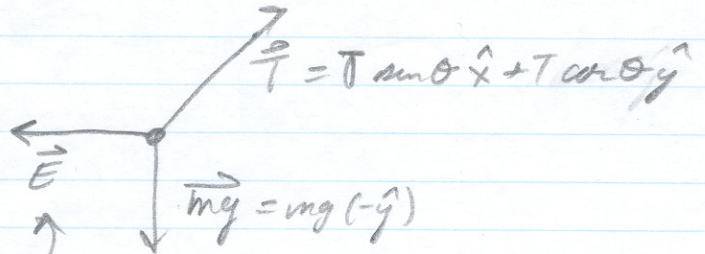 T⃗ = T sin θ x̂ + T cos θ ŷ
E⃗
m⃗g = mg (-ŷ)